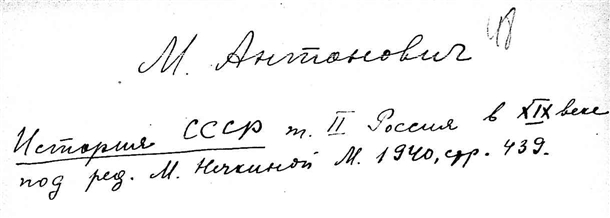 М. Антонович
История СССР т. II Россия в XIX веке
под ред. М. Нечкиной М. 1940, стр. 439.